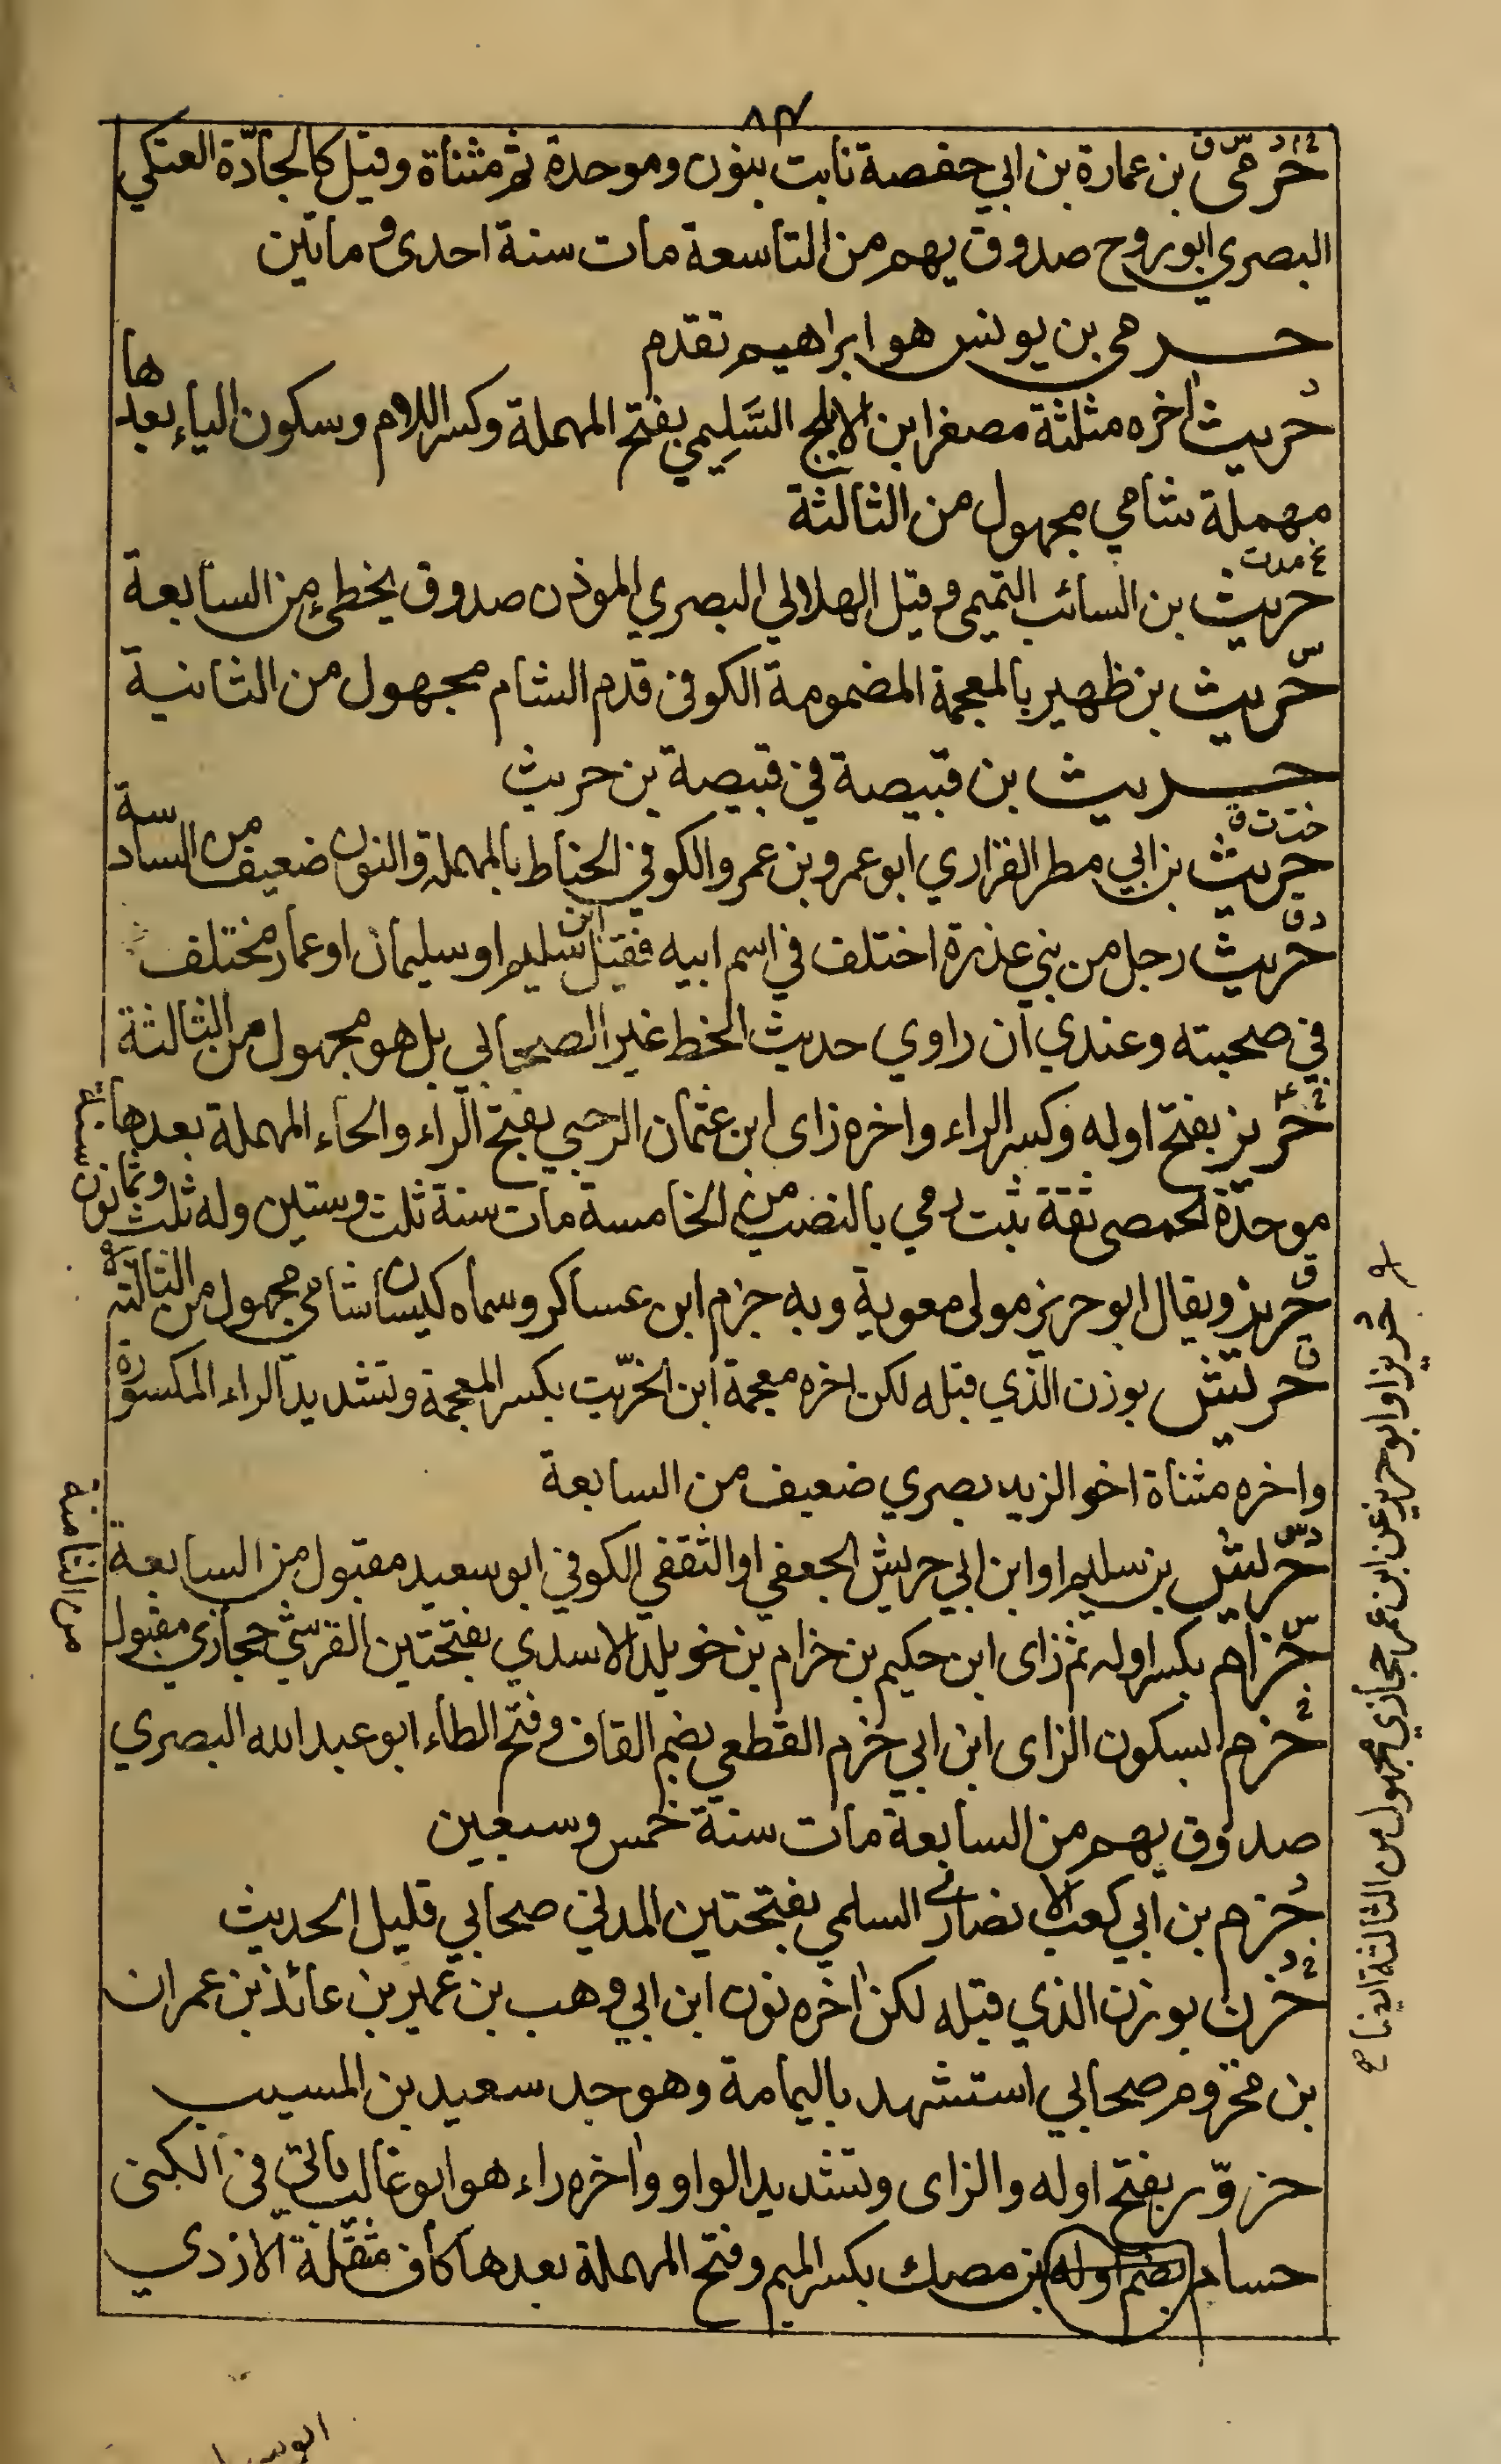 ٨٣
خ م د س ق
حرمي بن عمارة بن ابي حفصة نابت بنون وموحدة ثم مثناة وقيل كالجادّة العتكي
البصري ابو روح صدوق يهم من التاسعة مات سنة احدى وماتين
حرمي بن يونس هو ابراهيم تقدم
د
حُريث اخره مثلثة مصغرا بن الابلج السَّلِيحي بفتح المهملة وكسر اللام وسكون الياء بعدها
مهملة شامي مجهول من الثالثة
حريث بن السائب التميمي وقيل الهلالي البصري الموذن صدوق يخطئ من السابعة
س
حُريث بن ظهير بالمعجمة المضمومة الكوفي قدم الشام مجهول من الثانية
حريث بن قبيصة في قبيصة بن حريث
خت ت ق
حريث بن ابي مطر الفزاري ابو عمرو بن عمرو الكوفي الحناط بالمهملة والنون ضعيف من السادسة
د ق
حُريث رجل من بني عذرة اختلف في اسم ابيه فقيل ابن سليم او سليمان او عمار مختلف
في صحبته وعندي ان راوي حديث الخط غير الصحابي بل هو مجهول من الثالثة
خ عـ
حَريز بفتح اوله وكسر الراء واخره زاى ابن عثمان الرحبي بفتح الراء والحاء المهملة بعدها
موحدة الحمصي ثقة ثبت رمي بالنصب من الخامسة مات سنة ثلث وستين وله ثلث وثمانون سنة
ق
حريز ويقال ابو حريز مولى معوية وبه جزم ابن عساكر وسماه كيسان شامي مجهول من الثالثة
ت
حريش بوزن الذي قبله لكن اخره معجمة ابن الخرّيت بكسر المعجمة وتشديد الراء المكسورة
واخره مثناة اخو الزبير بصري ضعيف من السابعة
د س
حَريش بن سليم او ابن ابي حريش الجعفي او الثقفي الكوفي ابو سعيد مقبول من السابعة
س
حِزام بكسر اوله ثم زاى ابن حكيم بن خزام بن خويلد الاسدي بفتحتين القرشي حجازي مقبول
من الثامنة
خ
حزم بسكون الزاى ابن ابي حزم القطعي بضم القاف وفتح الطاء ابو عبد الله البصري
صدوق يهم من السابعة مات سنة خمس وسبعين
د
حزم بن ابي كعب الانصاري السلمي بفتحتين المدني صحابي قليل الحديث
خ د
حزن بوزن الذي قبله لكن اخره نون ابن ابي وهب بن عمير بن عائذ بن عمران
بن مخزوم صحابي استشهد باليمامة وهو جد سعيد بن المسيب
حزوّر بفتح اوله والزاى وتشديد الواو واخره راء هو ابو غالب ياتي في الكنى
حسام بضم اوله بن مصك بكسر الميم وفتح المهملة بعدها كاف مثقلة الازدي
حريز او ابو حريز عن ابن عمر حجازي مجهول من الثالثة ايضا صح